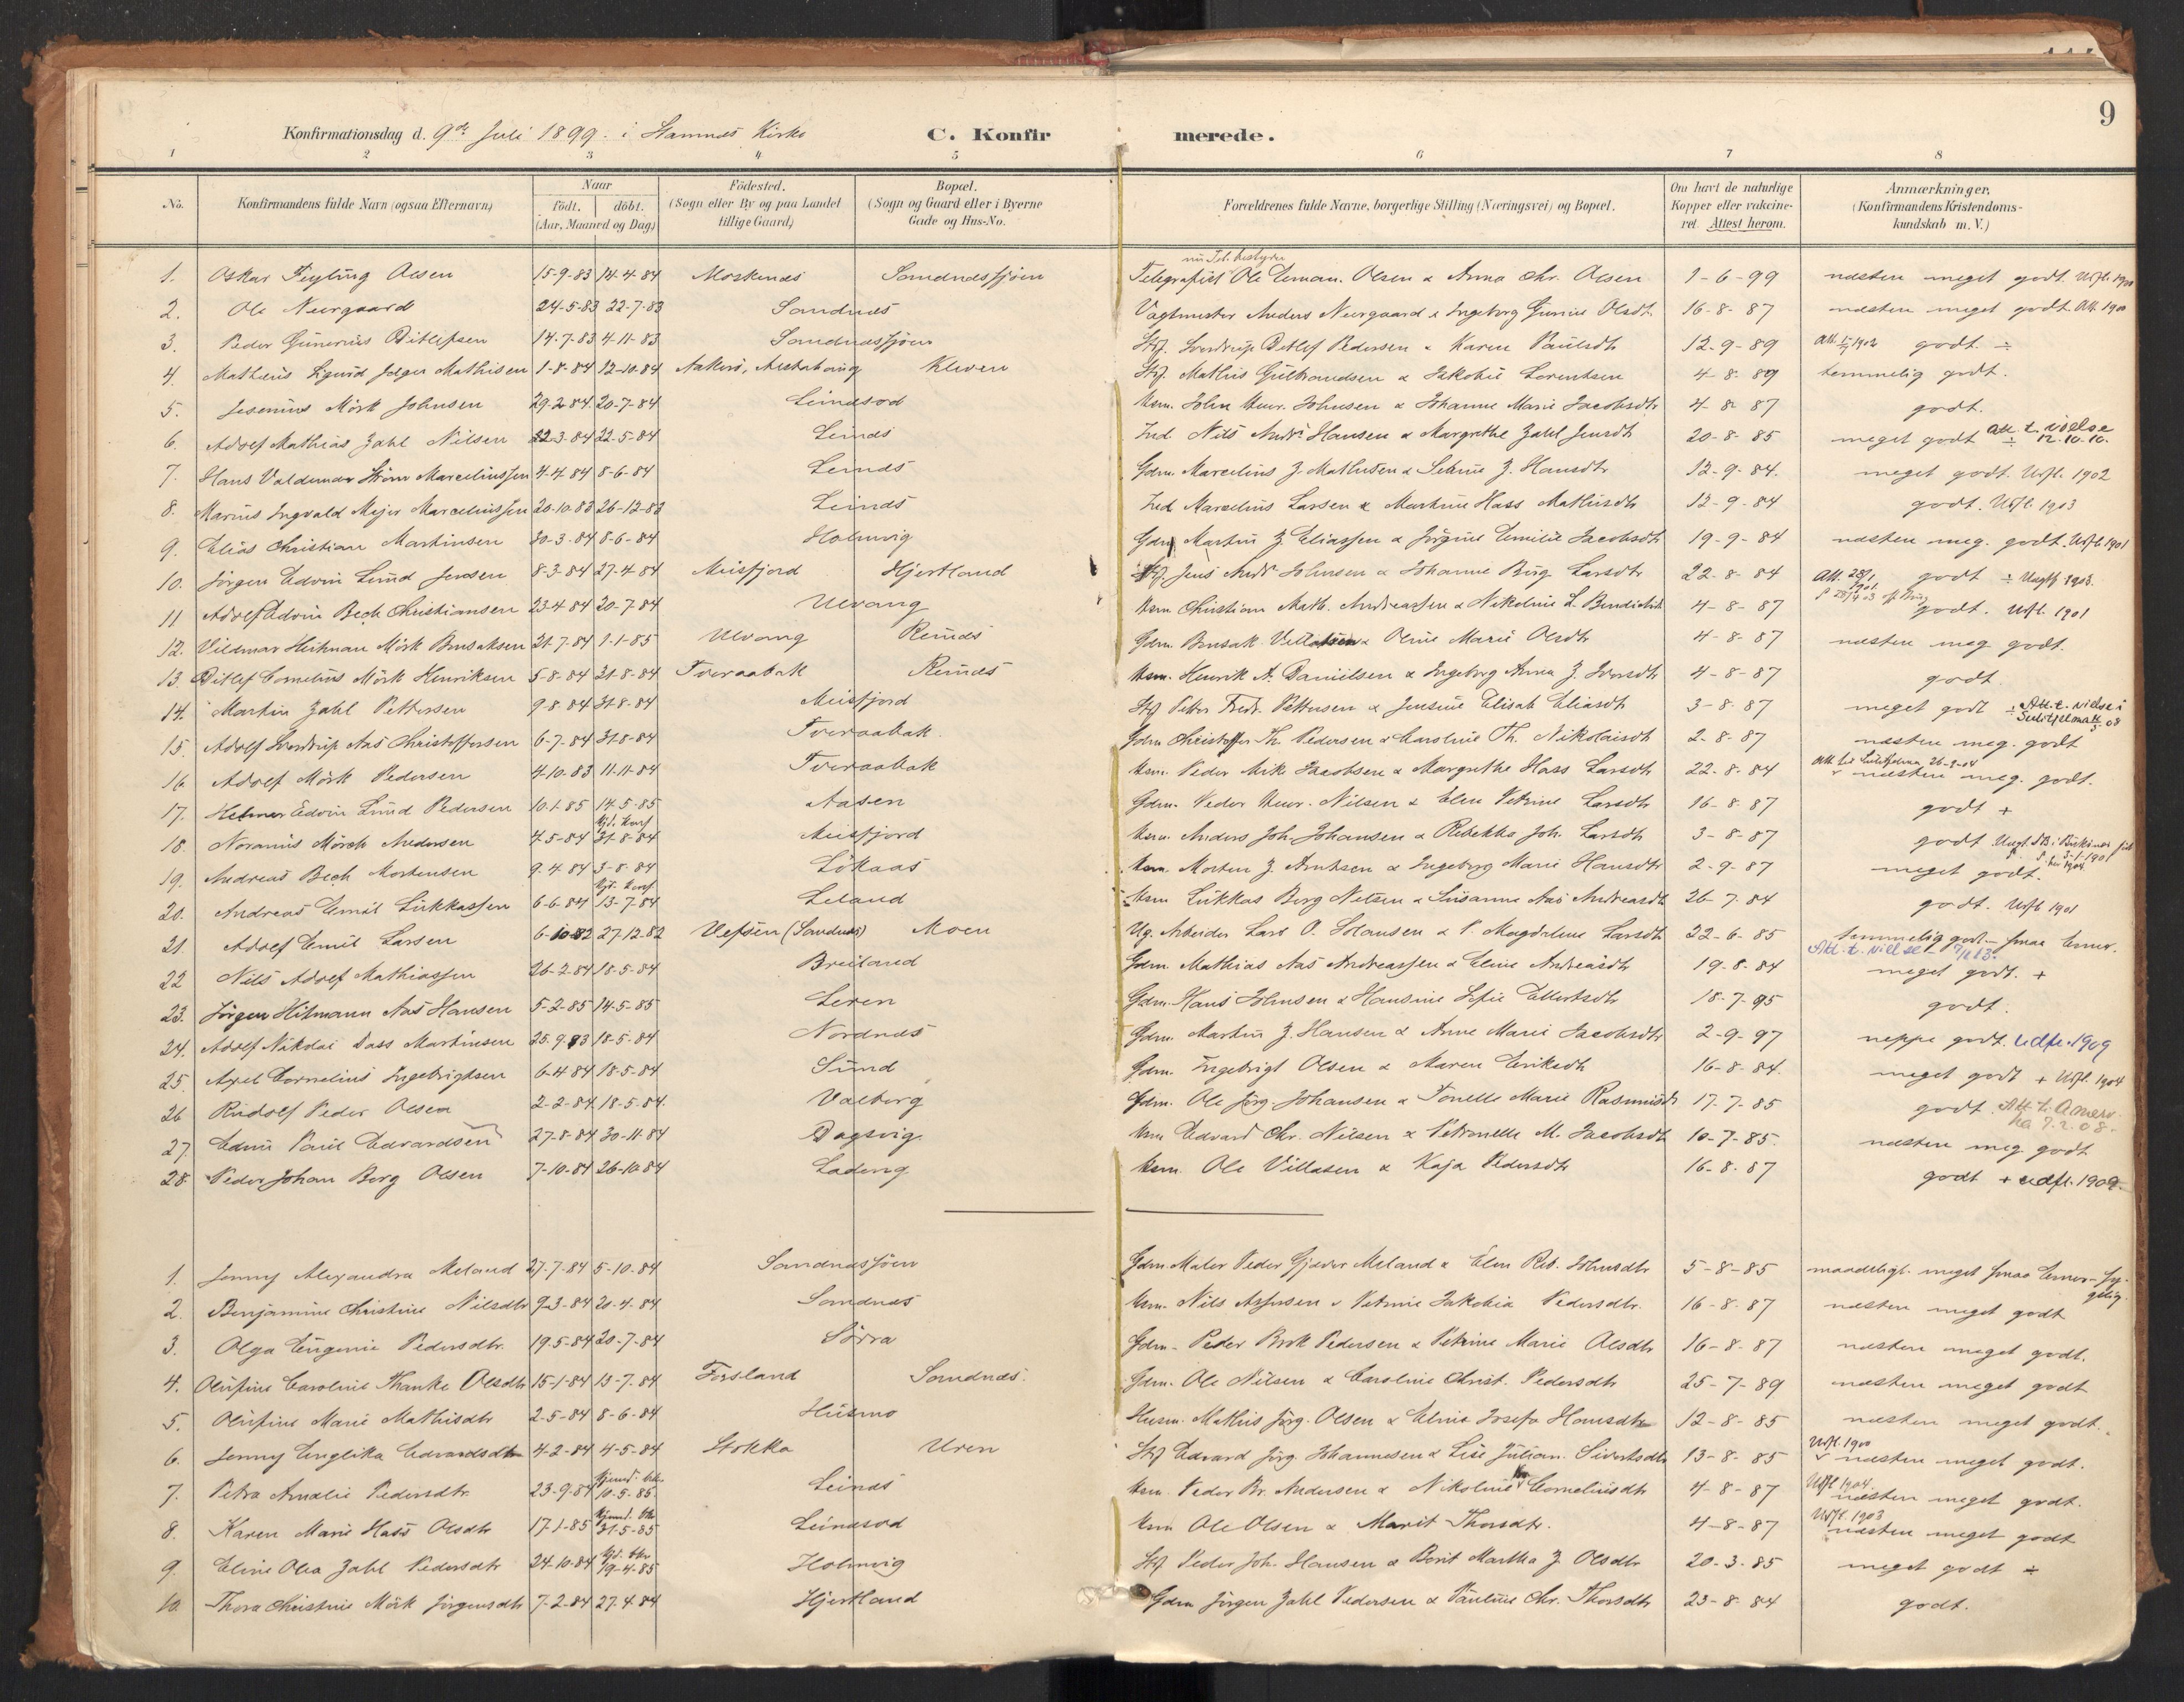 9
Konfirmationsdag d. 9de Juli 1899 i Stamnes Kirke C. Konfirmerede.
1 2 3 4 5 6 7 8
No. Konfirmandens fulde Navn (ogsaa Efternavn) Naar født, døbt. (Aar, Maaned og Dag) Födested. (Sogn eller By og paa Landet tillige Gaard) Bopæl. (Sogn og Gaard eller i Byerne Gade og Hus-No. Forældrenes fulde Navne, borgerlige Stilling (Næringsvei) og Bopæl. Om havt de naturlige Kopper eller vakcineret. Attest herom. Anmærkninger. (Konfirmandens Kristendomskundskab m.V.)
1. Oskar Olsen 15-9-83 14-4-84 Moskenes Sandnessjöen Telegrafist Ole Olsen & Anna Chr. Olsen 1-6-99 næsten meget godt.
2. Ole Neergaard 24-5-83 22-7-83 Sandnes Vagtmester Anders Neergaard & Ingeborg Olsdt. 16-8-87 næsten meget godt. Att. 1900
3. Peder Gunerius Ditlefsen 14-7-83 4-11-83 Sandnessjöen Ditlef Pedersen & Karen Paulsdtr 12-9-89 godt ÷
4. Mathæus Sigurd Mathisen 1-8-84 12-10-84 Kleven Mathis Gulbrandsen & Jakobie Lorentsen 4-8-89 temmelig godt.
5. Jesenius Mörk Johnsen 29-2-84 20-7-84 Leinesod Johnsen & Johanne Marie Jacobsdtr 4-8-87 godt.
6. Adolf Mathias Zahl Nilsen 22-3-84 22-5-84 Leines Ind. Nils Andr. Hansen & Margrethe Zahl Jensdtr 20-8-85 meget godt Att. t. vielse 12.10.10.
7. Hans Valdemar Ström Marceliussen 4-4-84 8-6-84 Leines Gdm. Marcelius J. Mathisen & J. Hansdtr 12-9-84. meget godt. Udfl. 1902
8. Marius Ingvald Mejer Marceliussen 20-10-83 26-12-83 Leines Ind. Marcelius Larsen & Martine Hass Mathisdtr 12-9-84 godt. Udfl. 1903
9. Elias Christian Martinsen 30-3-84 8-6-84 Holmvig Gdm. Martin J. Eliassen & Jörgine Emilie Jacobsdtr 19-9-84 næsten meg. godt. Udfl. 1901
10. Jörgen Edvin Lund Jensen 8-3-84 27-4-84 Meisfjord Hjertland Jens Andr. Johnsen & Johanne Birg. Larsdtr 22-8-84 godt ÷
11 Adolf Edvin Bech Christiansen 23-4-84 20-7-84 Ulvang Christian Math. Andreassen & Nikoline L. 4-8-87 godt. Udfl. 1901
12. Vildmar 21-7-84 1-1-85 Ulvang Reines Gdm. & Oline Marie Olsdtr 4-8-87 næsten meg godt.
13. Ditlef Cornelius Mörk Henriksen 5-8-84 31-8-84 Tveraabak Reines Henrik A. Danielsen & Ingeborg Anna J. Iversdtr 4-8-87 godt.
14. Martin Zahl Pettersen 9-8-84 31-8-84 Meisfjord Petter Fredr. Pettersen & Jensine Elisab. Eliasdtr 3-8-87 meget godt ÷ Att. t. vielse i Sulitjelma 08
15 Adolf Sverdrup Aas Christoffersen 6-7-84 31-8-84 Tveraabak. Gdm Christoffer Th. Pedersen & Caroline Th. Nikolaisdtr 2-8-87 næsten meg. godt
16 Adolf Mörk Pedersen 4-10-83 11-11-84 Tveraabak Peder Mik. Jacobsen & Margrethe Hass Larsdtr 22-8-84 næsten meg. godt.
17. Helmer Edvin Lund Pedersen 10-1-85 14-5-85 Aasen Gdm. Peder Nilsen & Elen Petrine Larsdtr 16-8-87 godt +
18. Noranius Mörch Andersen 4-5-84 31-8-84 Meisfjord Anders Joh. Johansen & Rebekka Joh. Larsdtr 3-8-87 godt
19. Andreas Bech Mortensen 9-4-84 3-8-84 Lökaas Morten J. Arntsen & Ingeborg Marie Hansdtr 2-9-87 meget godt.
20. Andreas Emil Lukkassen 6-6-84 13-7-84 Leland Lukkas Borg Nilsen & Susanne Aas Andreasdt 26-7-84 godt. Udfl. 1901
21. Adolf Emil Larsen 6-10-82 27-12-82 Vefsen (Sandnes) Moen Ug. Arbeider Lars O. Johansen & P. Magdalene Larsdtr 22-6-85 temmelig godt - smaa Evner.
22 Nils Adolf Mathiassen 26-2-84 18-5-84 Breiland Gdm. Mathias Aas Andreassen & Eline Andreasdtr 19-8-84 Att. t. vielse meget godt. +
23. Jörgen Hitmann Aas Hansen 5-2-85 14-5-85 Leren Gdm. Hans Johnsen & Hansine Sofie Ellertsdtr 18-7-95 godt.
24. Adolf Nikolai Dass Martinsen 25-9-83 18-5-84 Nordnes Gdm. Martin J. Hansen & Anne Marie Jacobsdtr 2-9-97 neppe godt. Udfl. 1909
25. Axel Cornelius Ingebrigtsen 6-4-84 18-5-84 Sund Gdm. Ingebrigt Olsen & Maren Eriksdtr 16-8-84. meget godt + Udfl. 1904
26 Rudolf Peder Olsen 2-2-84 18-5-84. Valberg Gdm. Ole Jörg. Johansen & Tonelle Marie Rasmusdt 17-7-85 godt. Att. t. Amer. 7.2.08.
27. Edvin Paul Edvardsen 27-8-84 30-11-84 Dagsvig Edvard Chr. Nilsen & Petronelle M. Jacobsdt 10-7-85. næsten meg godt
28. Peder Johan Berg Olsen 7-10-84 26-10-84 Lading Ole Villasen & Kaja Pedersdtr 16-8-87 godt + udfl. 1909.
1. Jenny Alexandra Meland 27-7-84 5-10-84 Sandnessjöen Gdm. Maler Peder Meland & Elen Reb. Johnsdtr 5-8-85 maadeligt. meget smaa Evner -
2. Benjamine Christine Nilsdtr 9-3-84 20-4-84 Sandnes Nils & Petrine Jakobia Pedersdtr. 16-8-87 næsten meget godt
3. Olga Eugenie Pedersdtr. 19-5-84 20-7-84 Sörra Gdm. Peder Pedersen & Petrine Marie Olsdtr 16-8-87 næsten meget godt.
4. Olufine Caroline Olsdtr 15-1-84 13-7-84 Forsland Sandnes. Gdm. Ole Nilsen & Caroline Christ. Pedersdtr 25-7-89 næsten meget godt
5. Olufine Marie Mathisdtr 2-5-84 8-6-84 Husmo Husm. Mathis Jörg. Olsen & Josefa Hansdtr 12-8-85 næsten meget godt.
6. Jenny Englika Edvardsdtr 4-2-84 4-5-84 Stokka Uren Edvard Jörg. Johannesen & Lise Julian. Sivertsdtr 13-8-85 Udfl. 1900 næsten meget godt.
7. Petra Amalie Pedersdtr. 23-9-84 10-5-85 Leines Peder Br. Andersen & Nikoline Corneliusdtr 4-8-87 Udfl. 1904. næsten meget godt.
8. Karen Marie Hass Olsdtr 17-1-85 31-5-85 Leinesod Ole Olsen & Marit Thorsdtr. 4-8-87 Udfl. 1903 næsten meget godt
9. Eline Olea Zahl Pedersdtr 24-10-84 19-4-85 Holmvig Peder Joh. Hansen & Berit Martha J. Olsdtr 20-3-85 meget godt ÷
10. Thora Christine Mörk Jörgensdtr 7-2-84 27-4-84 Hjertland Gdm Jörgen Zahl Pedersen & Pauline Chr. Thorsdtr 23-8-84 godt.